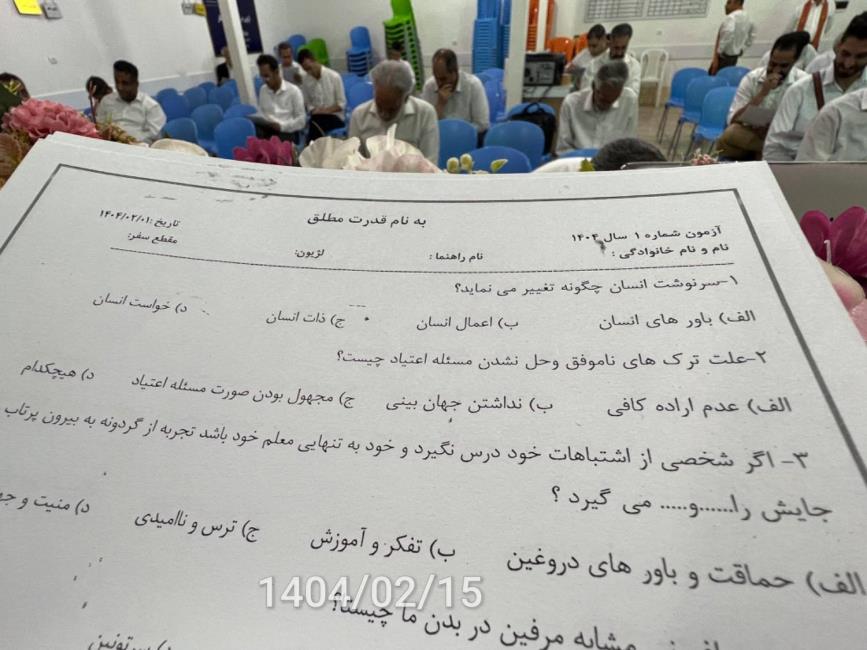 به نام قدرت مطلق
آزمون شماره ۱ سال ۱۴۰۴
تاریخ :۱۴۰۴/۰۲/۰۱
نام و نام خانوادگی :
نام راهنما :
لژیون:
مقطع سفر:
۱-سرنوشت انسان چگونه تغییر می نماید؟
الف) باور های انسان ب) اعمال انسان ج) ذات انسان د) خواست انسان
۲-علت ترک های ناموفق وحل نشدن مسئله اعتیاد چیست؟
الف) عدم اراده کافی ب) نداشتن جهان بینی ج) مجهول بودن صورت مسئله اعتیاد د) هیچکدام
۳- اگر شخصی از اشتباهات خود درس نگیرد و خود به تنهایی معلم خود باشد تجربه از گردونه به بیرون پرتاب
جایش را......و..... می گیرد ؟
الف) حماقت و باور های دروغین ب) تفکر و آموزش ج) ترس و ناامیدی د) منیت و
مشابه مرفین در بدن ما چیست؟
1404/02/15